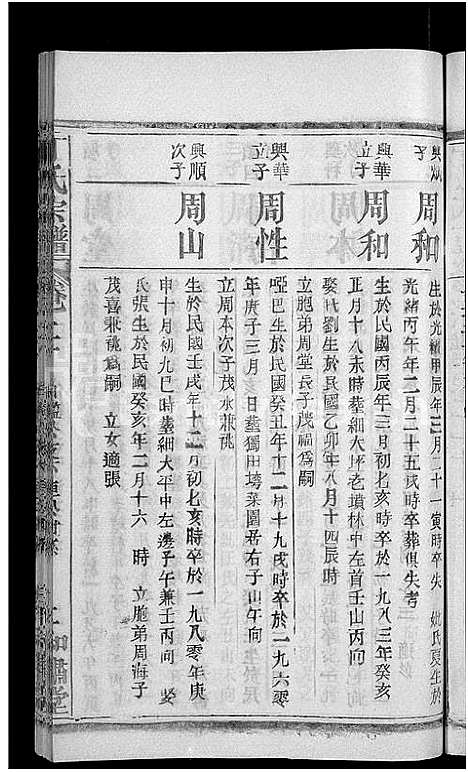 興順
子
周和
生於光緒甲辰年三月二十一寅時卒失 妣氏夏生於
光緒丙午年二月二十五戌時卒葬俱失考
興華
立子
周和
生於民國丙辰年三月初七亥時卒於一九八三年癸亥
正月十八未時塟細大坪老墳林中左首壬山丙向
娶氏劉生於民國乙卯年八月十四辰時
立胞弟周堂長子茂福為嗣
興華
立子
周性
啞巴生於民國癸丑年十二月十九戌時卒於一九六零
年庚子三月亥日塟獨田塝菜園嵒右子山午向
立周本次子茂永兼祧
興順
次子
周山
生於民國壬戌年十二月初七亥時卒於一九八零年庚
申十月初九巳時塟細大平中左邊子午兼壬丙向 娶
氏張生於民國癸亥年二月十六 時 立胞弟周海子
茂喜兼祧為嗣 立女適張
丁氏宗譜
卷